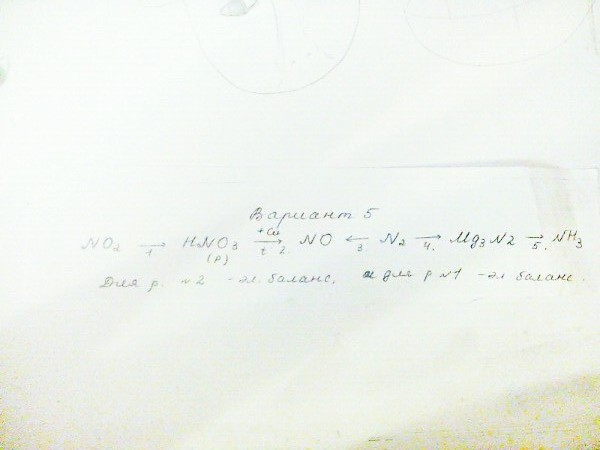 Вариант 5
NO2 → HNO3 +Cu → NO ← N2 → Mg3N2 → NH3
1. (р) t 2. 3. 4. 5.
Для р. №2 - эл. баланс, а для р №1 - эл. баланс.